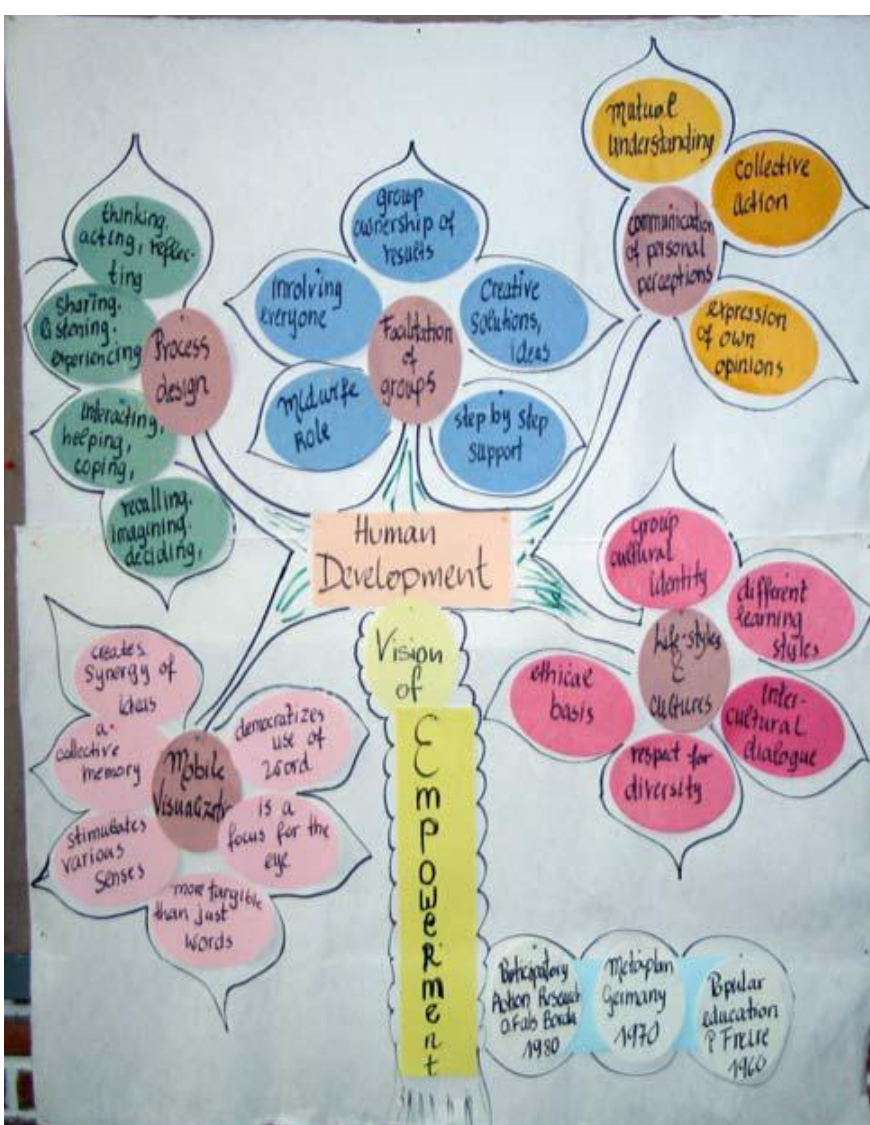 thinking.
acting, reflec-
ting
sharing.
listening.
experiencing
Interacting,
helping,
coping,
recalling.
imagining.
deciding,
Process
design
group
ownership of
results
involving
everyone
Creative
solutions,
ideas
midwife
Role
step by step
support
Facilitation
of
groups
mutual
understanding
collective
action
communication
of personal
perceptions
expression
of own
opinions
Human
Development
Vision
of
Empowerment
group
cultural
identity
different
learning
styles
ethical
basis
life-styles
&
cultures
Inter-
cultural
dialogue
respect for
diversity
creates
Synergy of
ideas
a
collective
memory
democratizes
use of
word
Mobile
Visualization
is a
focus for the
eye
stimulates
various
Senses
more tangible
than just
words
Participatory
Action Research
O. Fals Borda
1980
Metaplan
Germany
1970
Popular
education
P Freire
1960